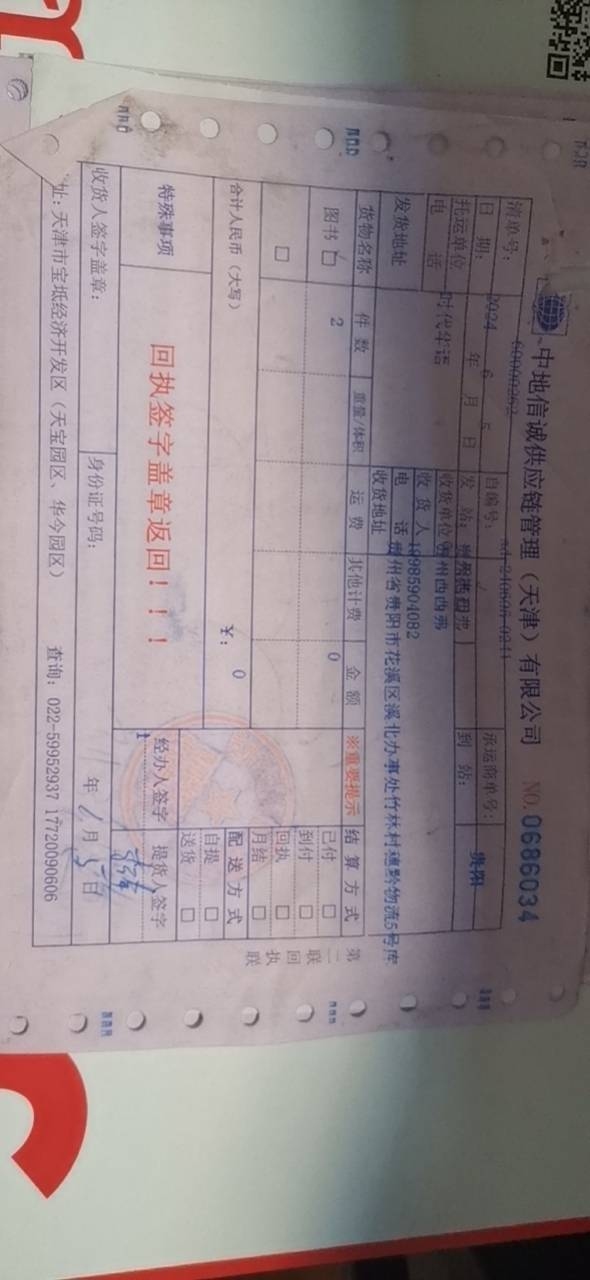 中地信诚供应链管理（天津）有限公司 NO.0686034
清单号： 自编号： 承运商单号：
日 期： 2024 年 6 月 5 日 发 站： 到 站： 贵阳
托运单位 时代华语 收货单位 贵州西西弗
电 话 收 货 人
电 话 19985904082
发货地址 收货地址 贵州省贵阳市花溪区溪北办事处竹林村速黔物流5号库
货物名称 件 数 重量/体积 运 费 其他计费 金 额 ※重要提示 结 算 方 式
图书 □ 2 0 已付 □
到付 □
□ 回执 □
月结 □
合计人民币（大写） ¥： 0 配 送 方 式
自提 □
送货 □
特殊事项 回执签字盖章返回！！！ 经办人签字 提货人签字
1
收货人签字盖章： 身份证号码： 年 6 月 5 日
址：天津市宝坻经济开发区（天宝园区、华今园区） 查询：022-59952937 17720090606
第二联 回执联